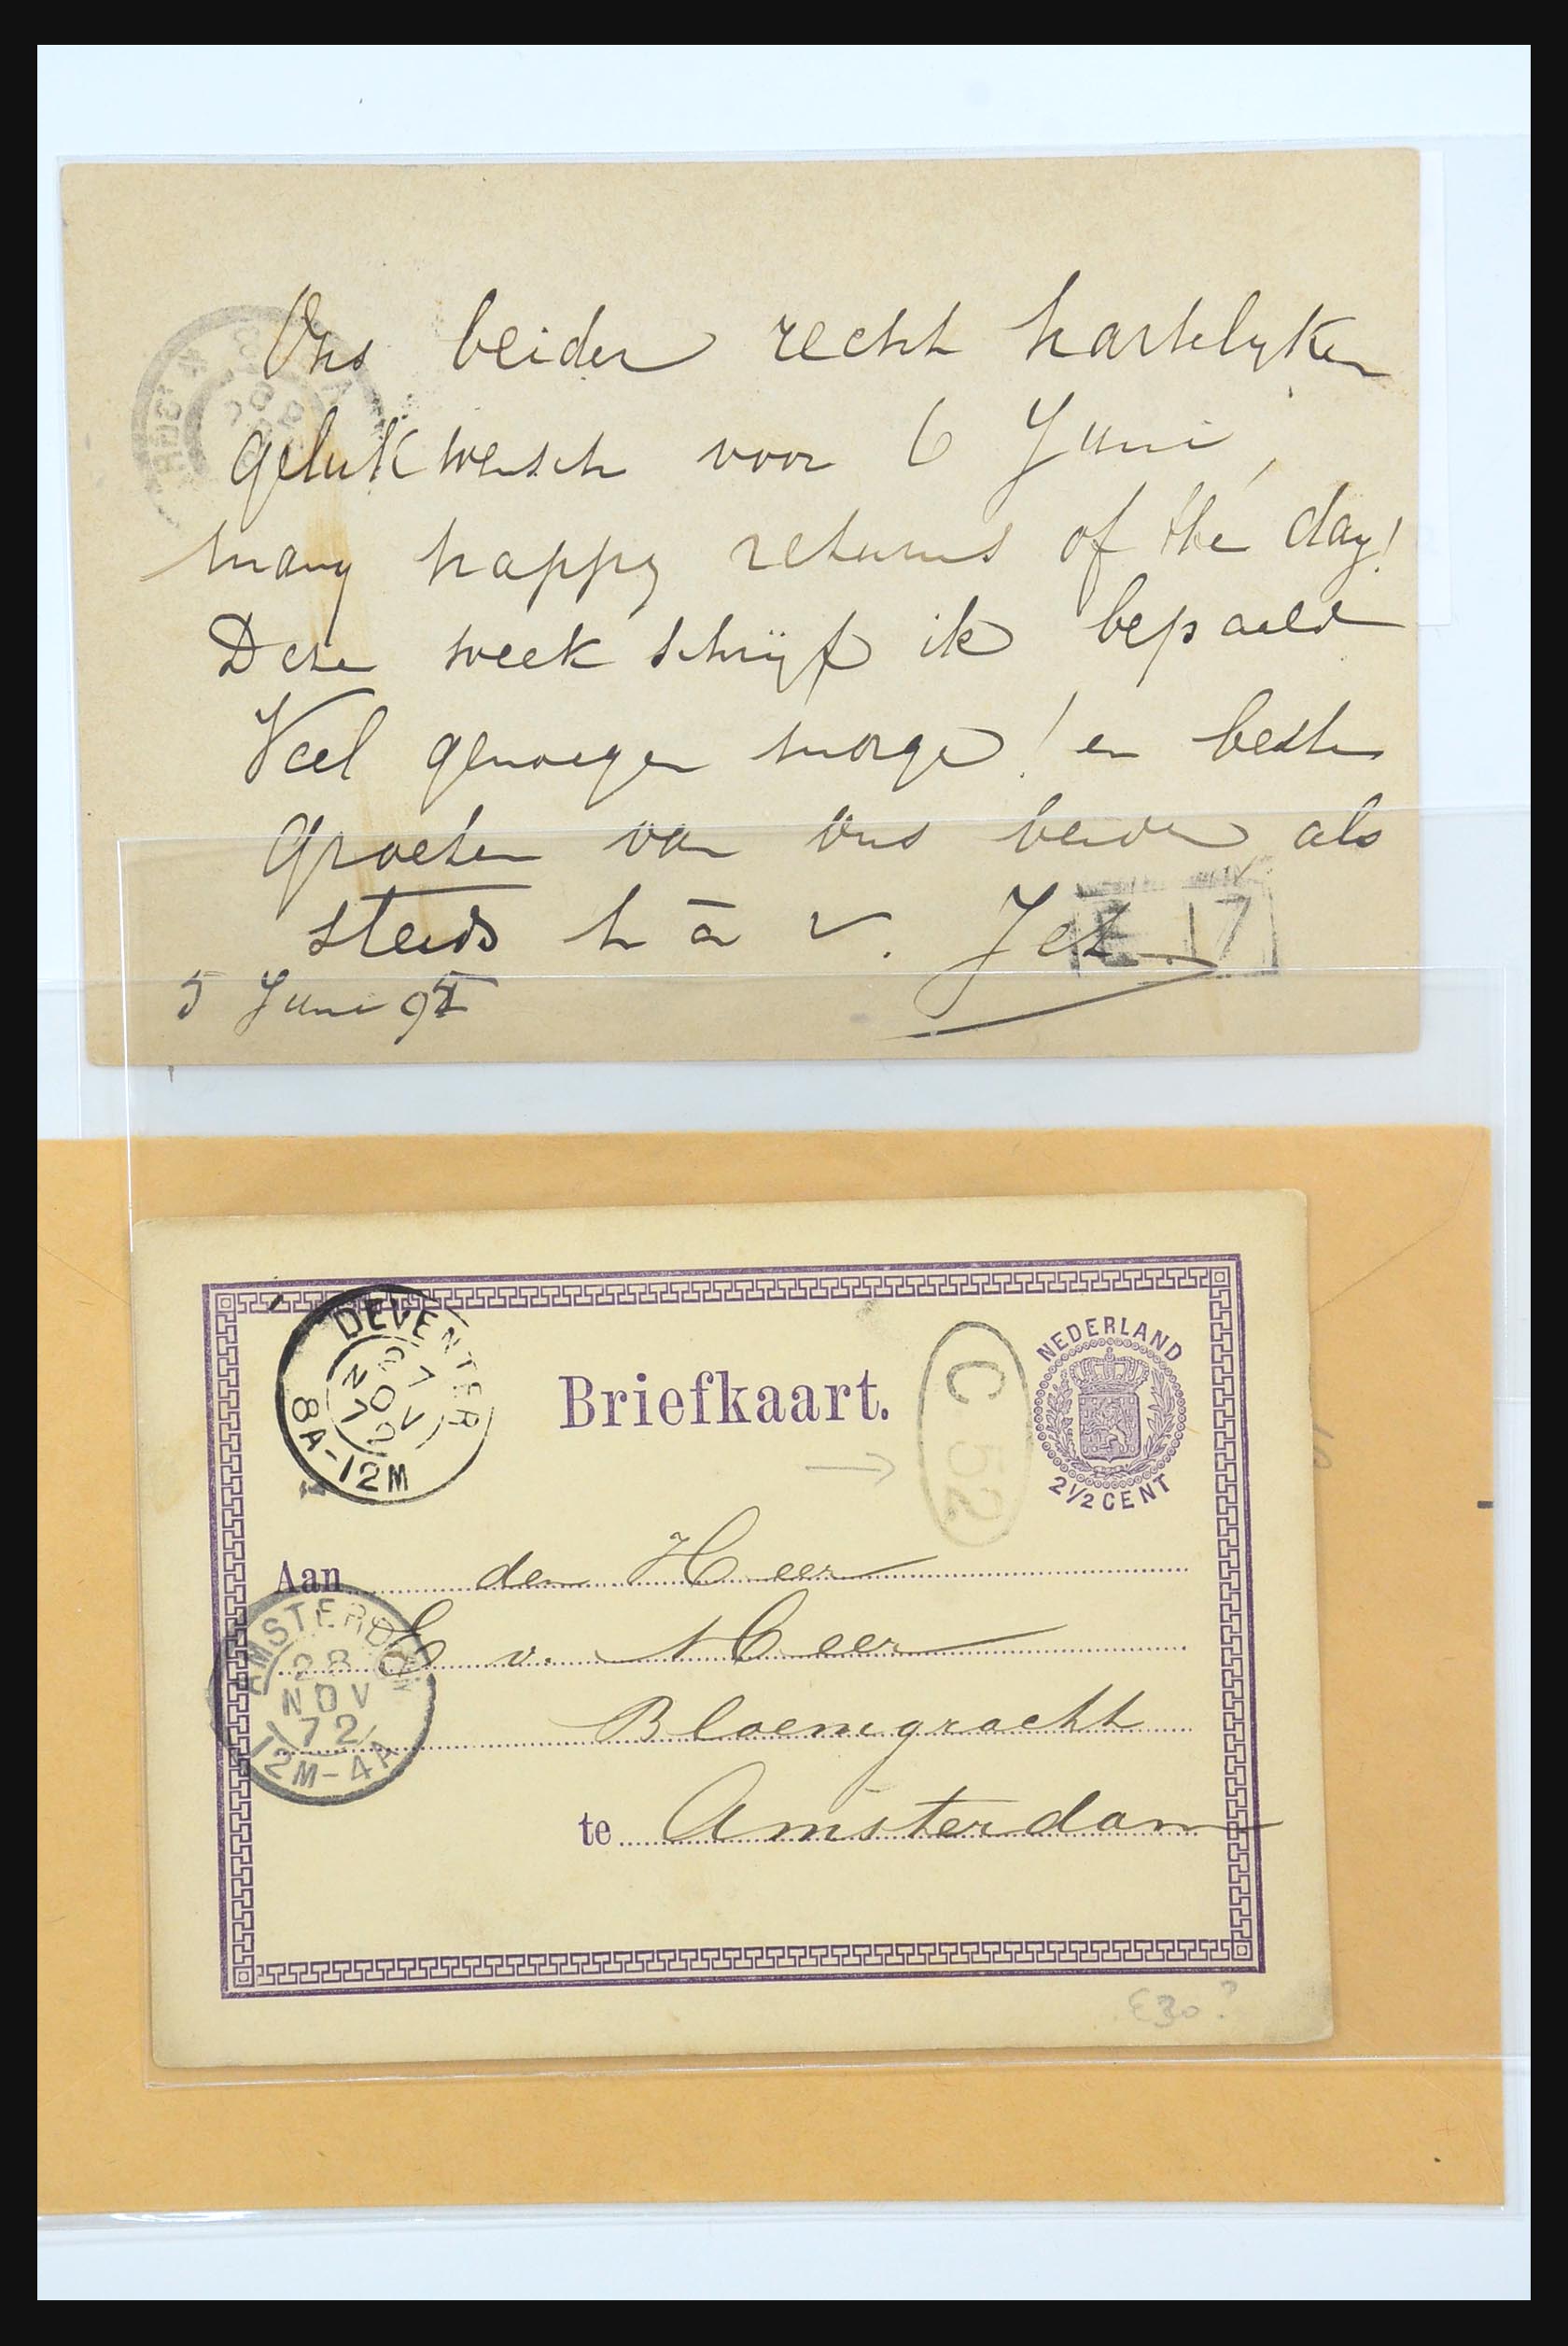 Ons beider recht hartelyken
gelukwensch voor 6 Juni,
many happy returns of the day!
Deze week schrijf ik bepaald
Veel genoegen morge! en beste
groeten van ons beiden als
steeds t à v. Jet
5 Juni 95
17
DEVENTER
27
NOV
72
8A-12M
Briefkaart.
C 52
NEDERLAND
2½ CENT
Aan den Heer
v. Heer
Bloemgracht
te Amsterdam
AMSTERDAM
28
NOV
72
12M-4A
€30?